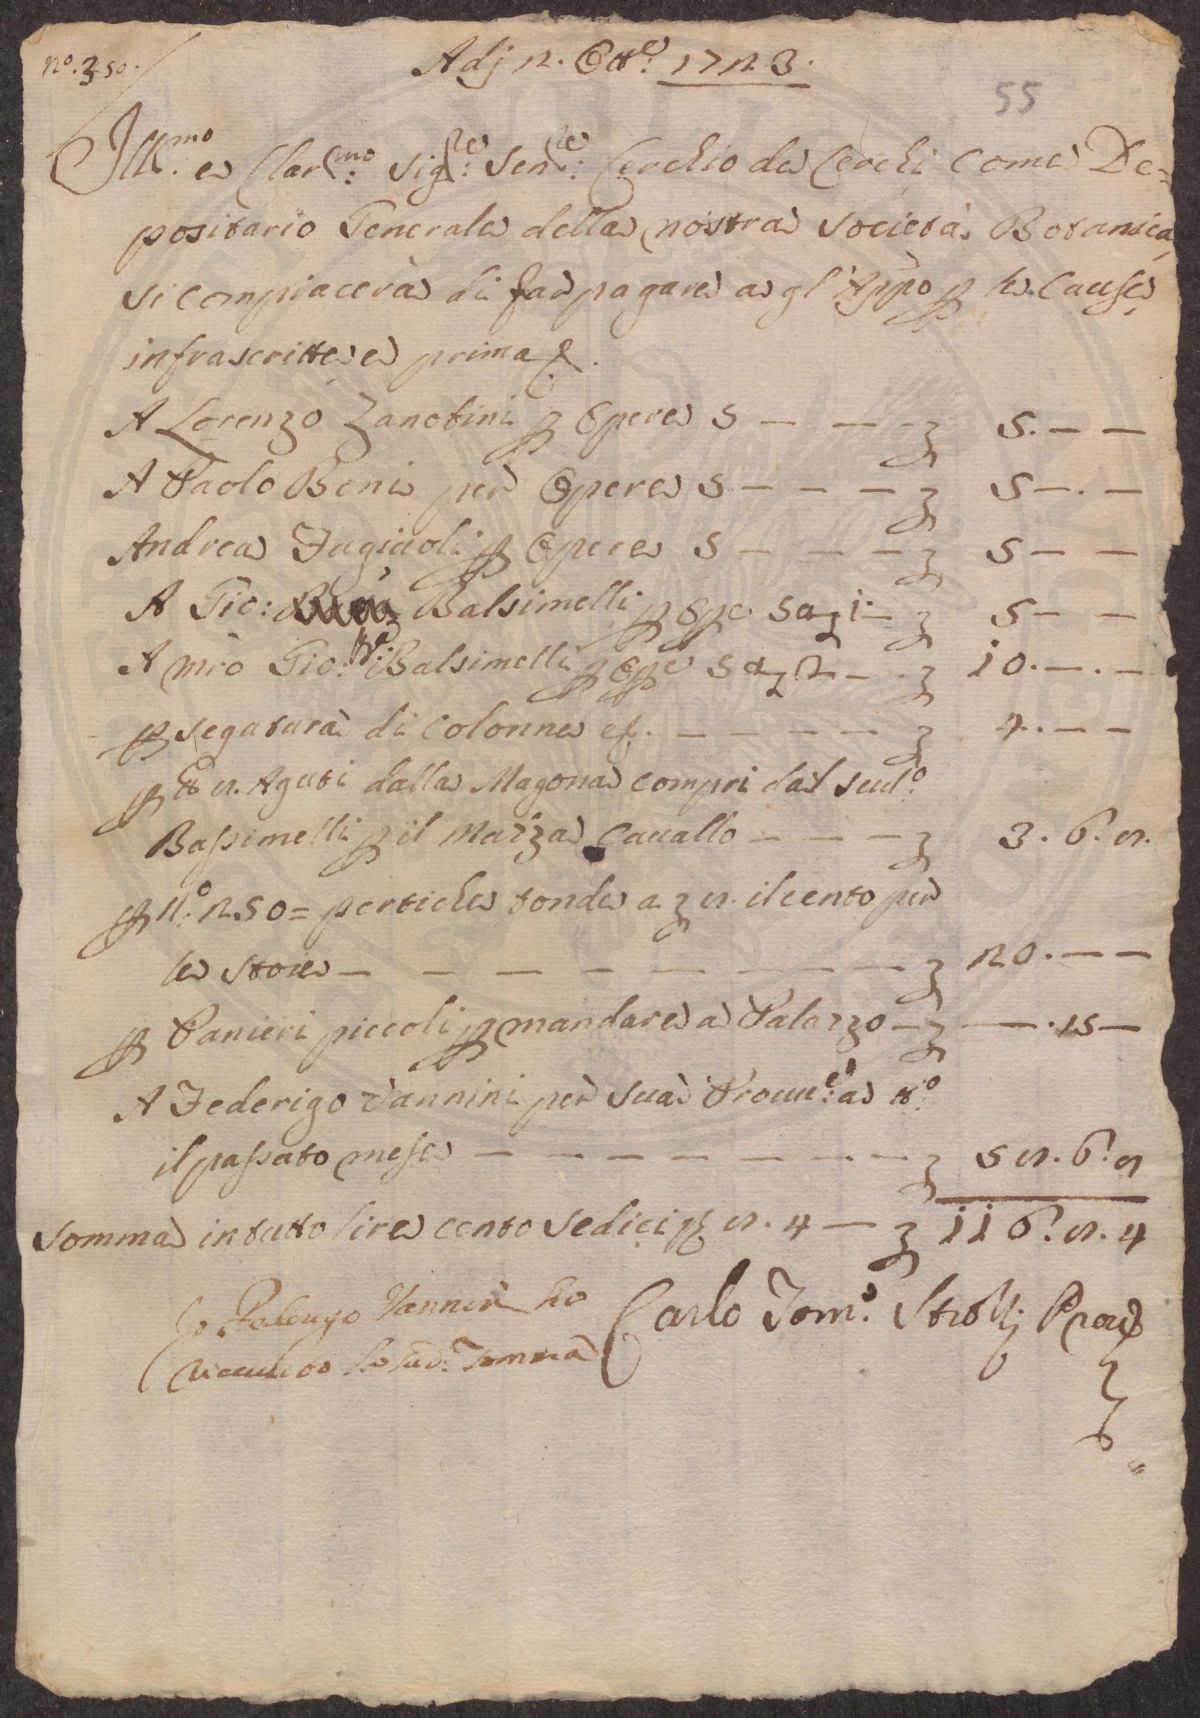 N.o 350.
Adj 2. Ott.e 1723.
55
Ill.mo e Clar.mo Sig.re Sen.re Cerchio de Cerchi come De=
positario Generale della nostra Società Botanica
si compiacerà di far pagare a gl'App.o p le cause
infrascritte e prima
A Lorenzo Zanobini p Opere 5 — — — 5. — —
A Paolo Boni per Opere 5 — — — 5 — . —
Andrea p Opere 5 — — — 5 — —
A Gio: Balsimelli p Ope 5 a 1 — 5 — —
A mro Gio: Ba Balsimelli p Ope 5 a 2 — 10. — . —
p segatura di colonne — — — — 4. — —
p tt 2. Aguti dalla Magona compri dal sud.o
Bassimelli p il Mazza Cavallo — — — 3. 6. 2.
p N.o 250 = pertiche tonde a 2. il cento per
le stoie — — — — — — — 20. — —
p Panieri piccoli p mandare a Palazzo — — . 15 —
A Federigo Vannini per sua Prouu.e a tt.o
il passato mese — — — — — — — 52. 6. 2
Somma in tutto lire cento sedici 2. 4 — 116. 2. 4
Io Federigo Vannini ho Carlo Tom.o Strozzi Prou.e
riceuuto la sud.a Somma